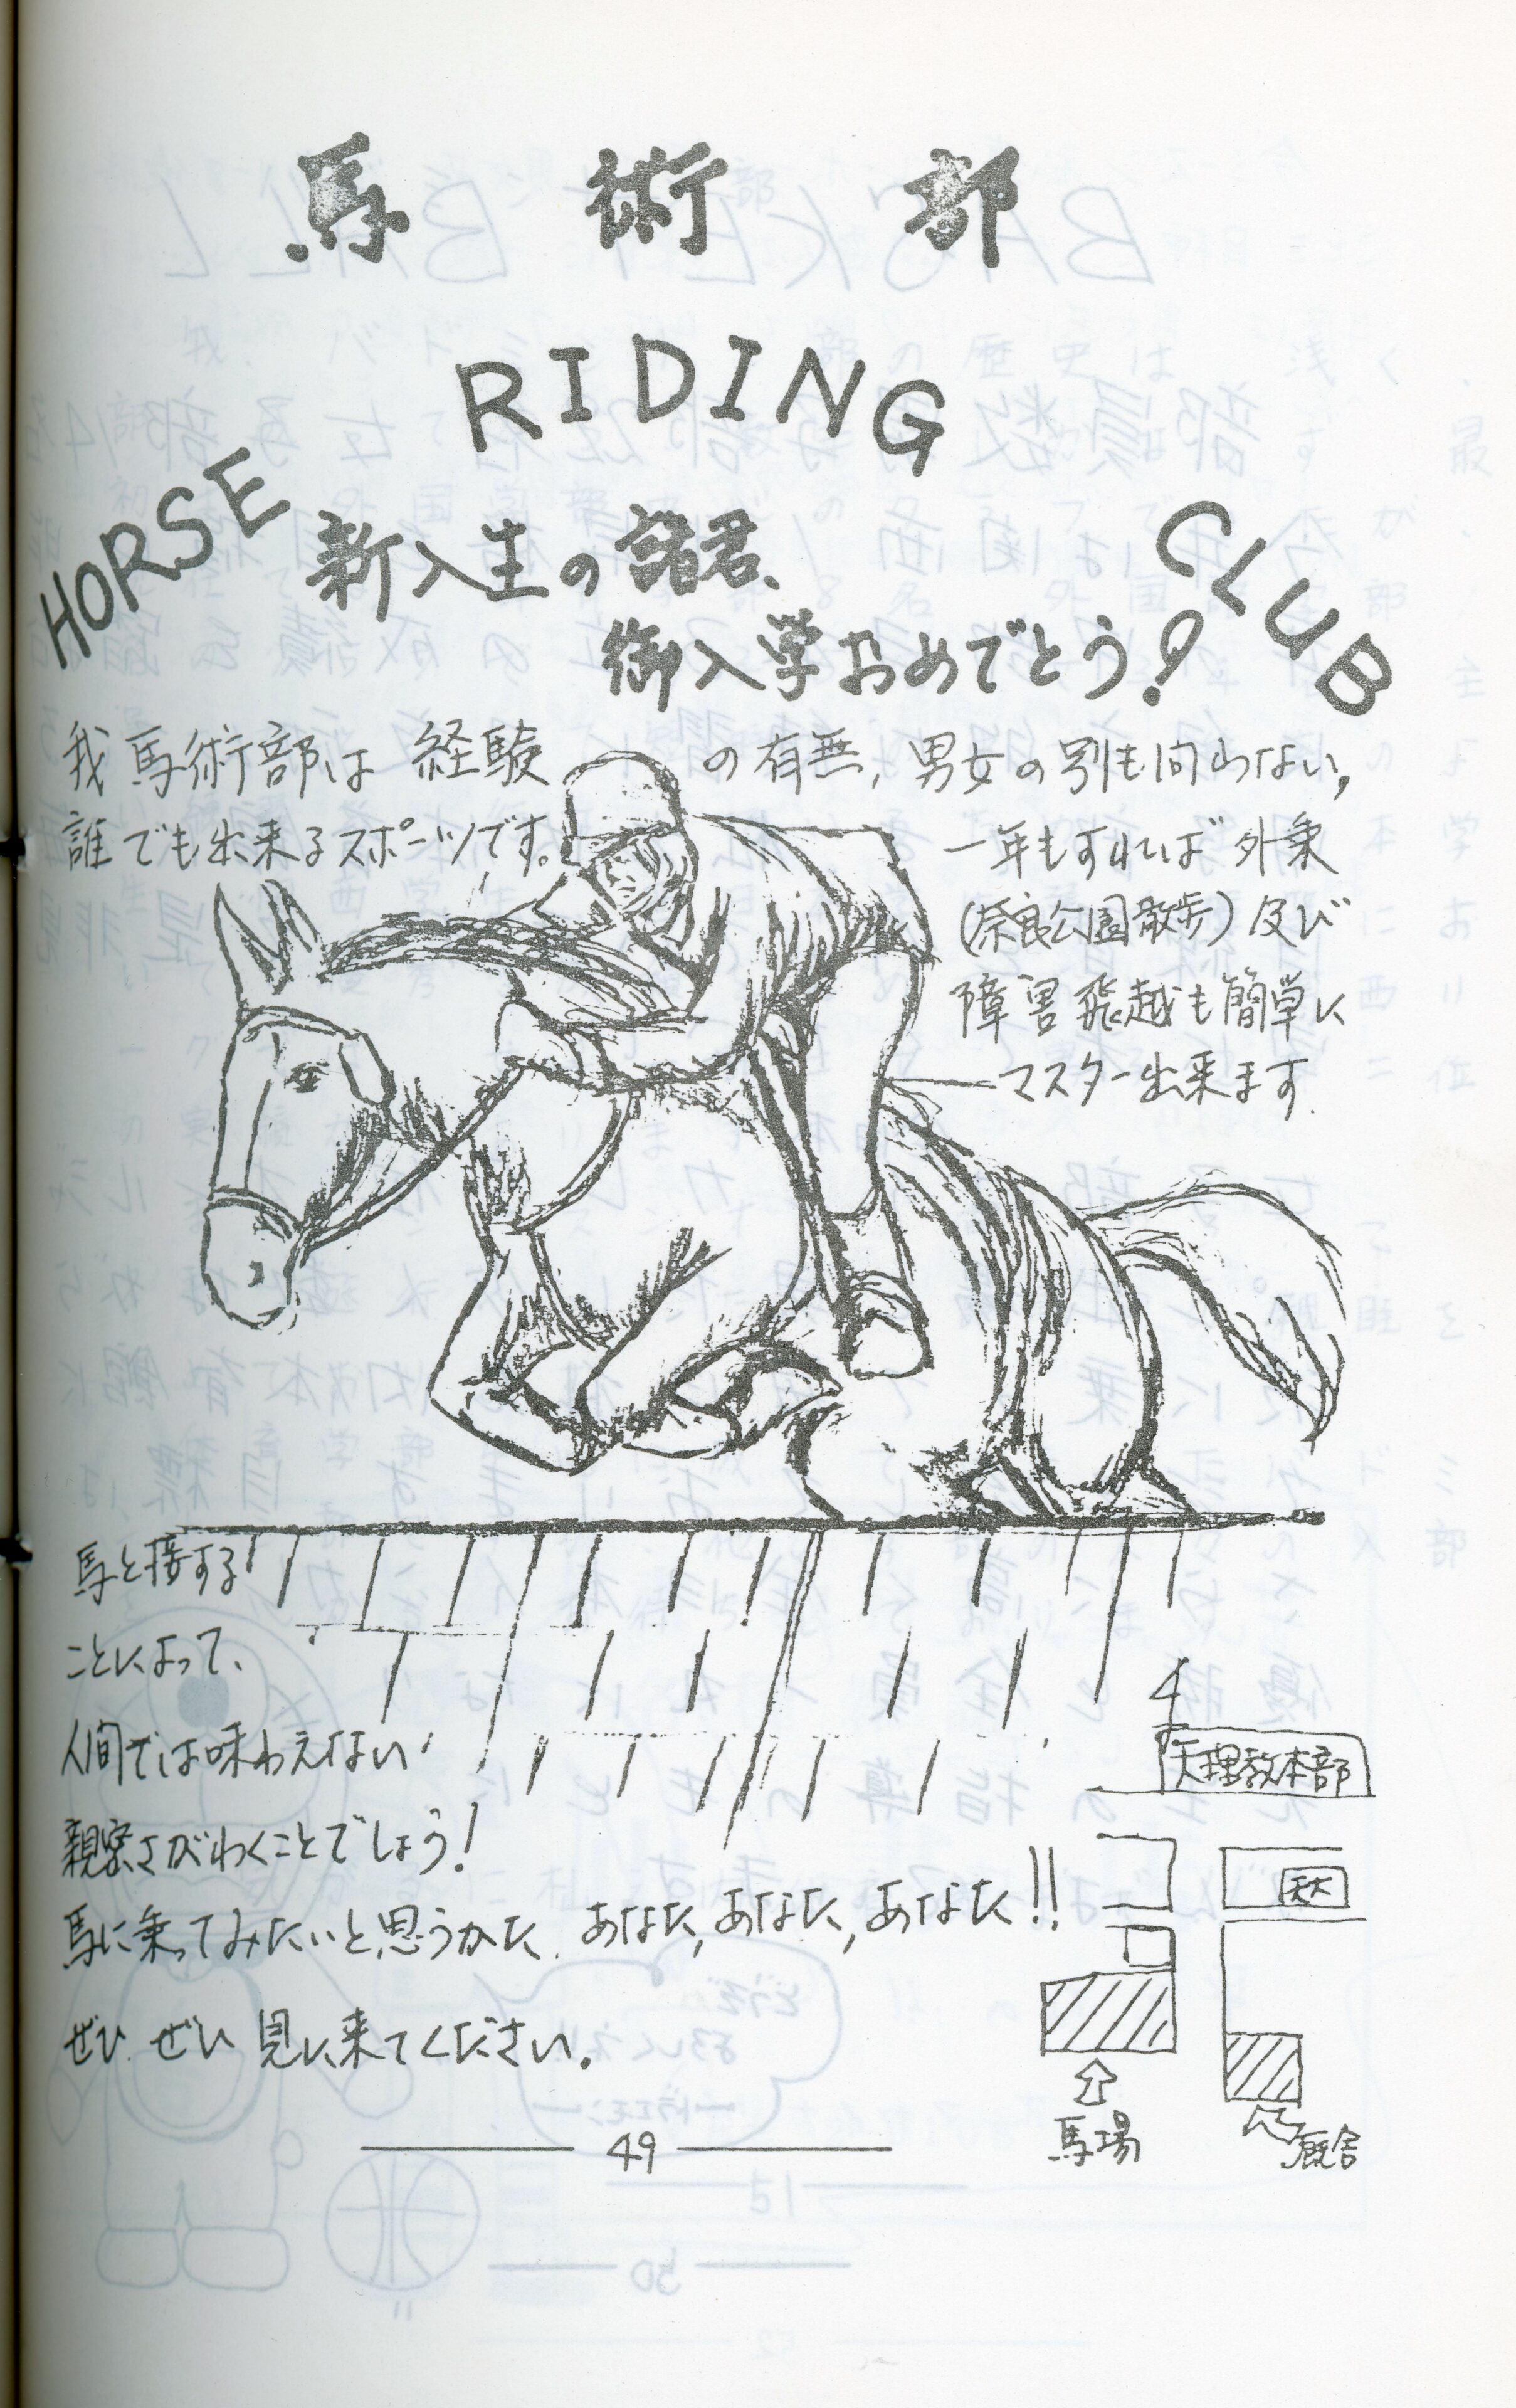 馬術部
HORSE RIDING CLUB
新入生の諸君、
御入学おめでとう!
我馬術部は経験の有無,男女の別も問わない,
誰でも出来るスポーツです。
一年もすれば外乗
(奈良公園散歩)及び
障害飛越も簡単に
マスター出来ます.
馬と接する
ことによって、
人間では味わえない
親密さがわくことでしょう!
馬に乗ってみたいと思うかた.あなた,あなた,あなた!!
ぜひ.ぜひ見に来てください.
4
天理教本部
天大
馬場
厩舎
49